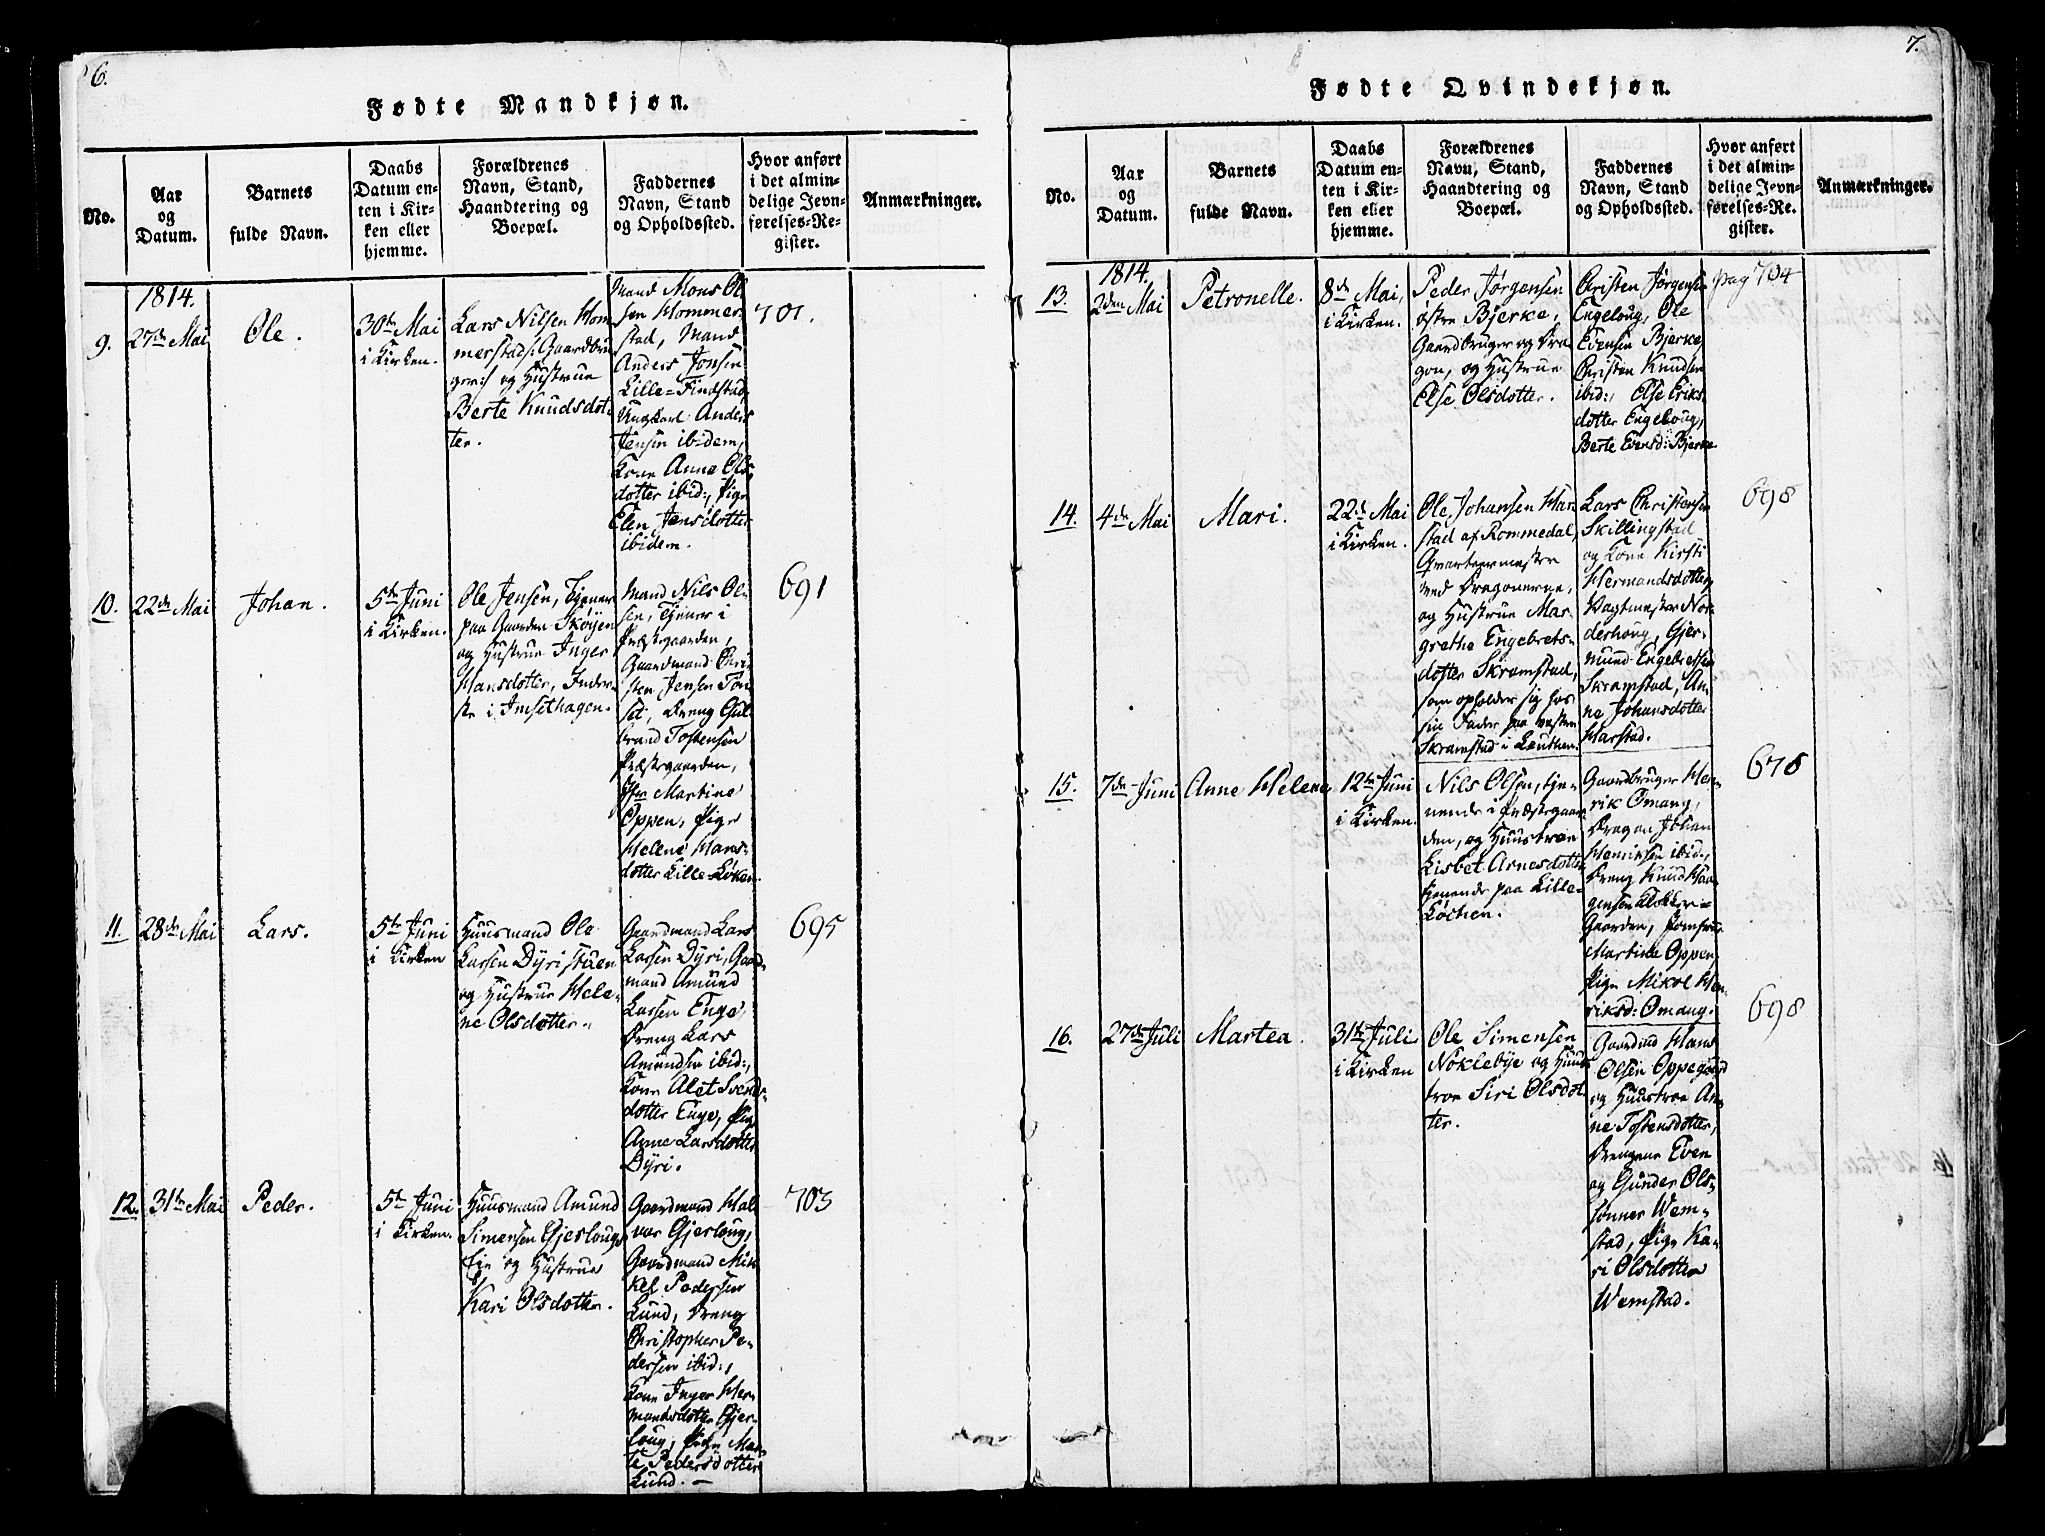 6.
Fødte Mandkjøn.
No.
Aar
og
Datum.
Barnets
fulde Navn.
Daabs
Datum en-
ten i Kir-
ken eller
hjemme.
Forældrenes
Navn, Stand,
Haandtering og
Boepæl.
Faddernes
Navn, Stand
og Opholdssted.
Hvor anført
i det almin-
delige Jevn-
førelses-Re-
gister.
Anmærkninger.
1814.
9.
27de Mai
Ole.
30te Mai
i Kirken.
Lars Nilsen Hom
merstad, Gaardbru
ger og Hustrue
Berte Knudsdot-
ter.
Mand Mons Ol
sen Hommer
stad, Mand
Anders Jonsen
Lille-Findstad,
Ungkarl Anders
Jensen ibidem,
Kone Anne Ols
dotter ibid:, Pige
Elen Jensdotter
ibidem.
701.
10.
22de Mai
Johan.
5te Juni
i Kirken.
Ole Jensen, Tjener
paa Gaarden Skøyen
og Hustrue Inger
Hansdotter, Inder-
ste i Imsethagen.
Mand Nils Ol-
sen, Tjener i
Præstegaarden,
Gaardmand Chri-
sten Jensen Tøn
set, Dreng Gul-
brand Tostensen
Præstegaarden,
Jfr Martine
Oppen, Pige
Helene Hans-
dotter Lille-Løken.
691
11.
28de Mai
Lars.
5te Juni
i Kirken
Huusmand Ole
Larsen Dyristuen
og Hustrue Hele-
ne Olsdotter.
Gaardmand Lars
Larsen Dyri, Gaard-
mand Amund
Larsen Enge,
Dreng Lars
Amundsen ibid:,
Kone Alet Svends-
dotter Enge, Pige
Anne Larsdotter
Dyri.
695
12.
31te Mai
Peder.
5te Juni
i Kirken.
Huusmand Amund
Simensen Gjerlougs
Eie og Hustrue
Kari Olsdotter.
Gaardmand Hal
vor Gjerloug,
Gaardmand Mik
kel Pedersen
Lund, Dreng
Christopher Pe-
dersen ibid:,
Kone Inger Her-
mandsdotter Gjer-
loug, Pige Mar-
te Pedersdotter
Lund. —
703
7.
Fødte Qvindekjøn.
No.
Aar
og
Datum.
Barnets
fulde Navn.
Daabs
Datum en-
ten i Kir-
ken eller
hjemme.
Forældrenes
Navn, Stand,
Haandtering og
Boepæl.
Faddernes
Navn, Stand
og Opholdssted.
Hvor anført
i det almin-
delige Jevn-
førelses-Re-
gister.
Anmærkninger.
1814.
13.
2den Mai
Petronelle.
8de Mai,
i Kirken.
Peder Jørgensen
østre Bjerke,
Gaardbruger og Dra-
gon, og Hustrue
Else Olsdotter.
Christen Jørgensen
Engeloug, Ole
Evensen Bjerke,
Christen Knudsen
ibid:, Else Eriks
dotter Engeloug,
Berte Evensd: Bjerke
pag 704
14.
4de Mai
Mari.
22de Mai
i Kirken.
Ole Johansen Har
stad af Rommedal,
Quarteermester
ved Dragonerne,
og Hustrue Mar-
grethe Engebrets-
dotter Skramstad,
som opholder sig hos
sin Fader paa vestre
Skramstad i Løuthen.
Lars Christensen
Skillingstad
og Kone Kirsti
Hermandsdotter,
Vagtmester Nor
derhoug, Gjer-
mund Engebretsen
Skramstad, An-
ne Johansdotter
Harstad.
698
15.
7de Juni
Anne Helene
12te Juni
i Kirken.
Nils Olsen, tje-
nende i Præstegaar
den, og Huustroe
Lisbet Arnesdotter
tjenende paa Lille-
Løchen.
Gaardbruger Hen-
rik Omang,
Dragon Johan
Henriksen ibid:,
Dreng Knud Haa-
gensen Klokker-
Gaarden, Jomfrue
Martine Oppen,
Pige Mikol Hen-
riksd: Omang.
678
16.
27de Juli
Martea.
31te Juli
i Kirken
Ole Simensen
Nøklebye og Huus-
troe Siri Olsdot
ter.
Gaardmd Hans
Olsen Oppegaard
og Huustroe An-
ne Tostensdotter,
Drengene Even
og Gunder Ols-
sønner Wem-
stad, Pige Ka-
ri Olsdotter
Wemstad.
698